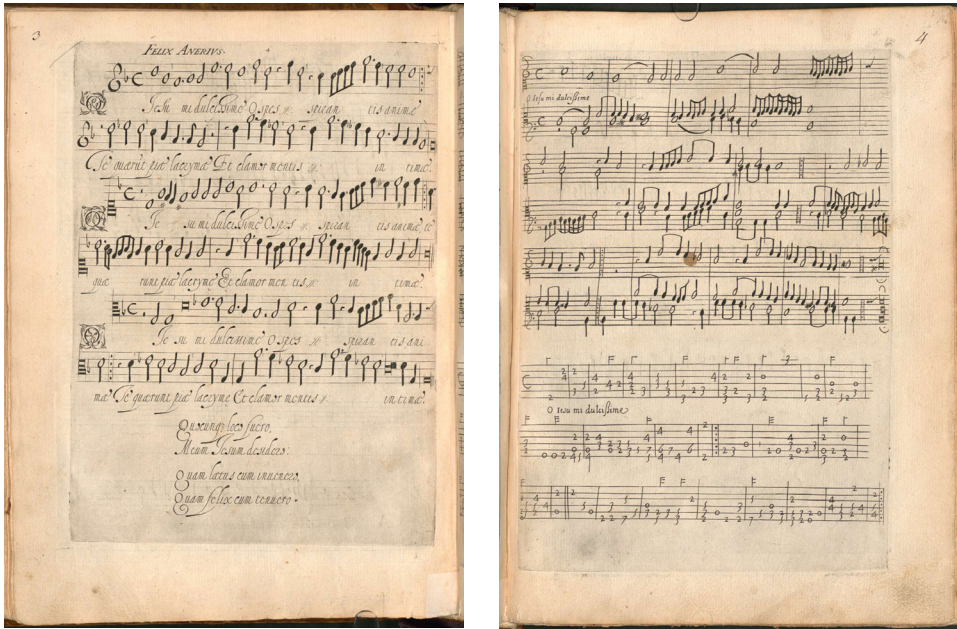 3
FELIX ANERIVS.
Jesu mi dulcissime O spes ij spiran tis animæ
Te quærūt piæ lacrymæ Et clamor mentis ij in timæ.
Je su mi dulcissime O spes ij spiran tis animæ te
quæ runt piæ lacrymæ Et clamor men tis ij in timæ.
Je su mi dulcissime O spes ij spiran tis ani
mæ Te quærunt piæ lacrymæ Et clamor mentis ij in timæ.
loco fuero,
Meum Jesum desidero:
Quam lætus cum inuenero,
Quam felix cum tenuero.
4
O Iesu mi dulcissime
O Iesu mi dulcissime